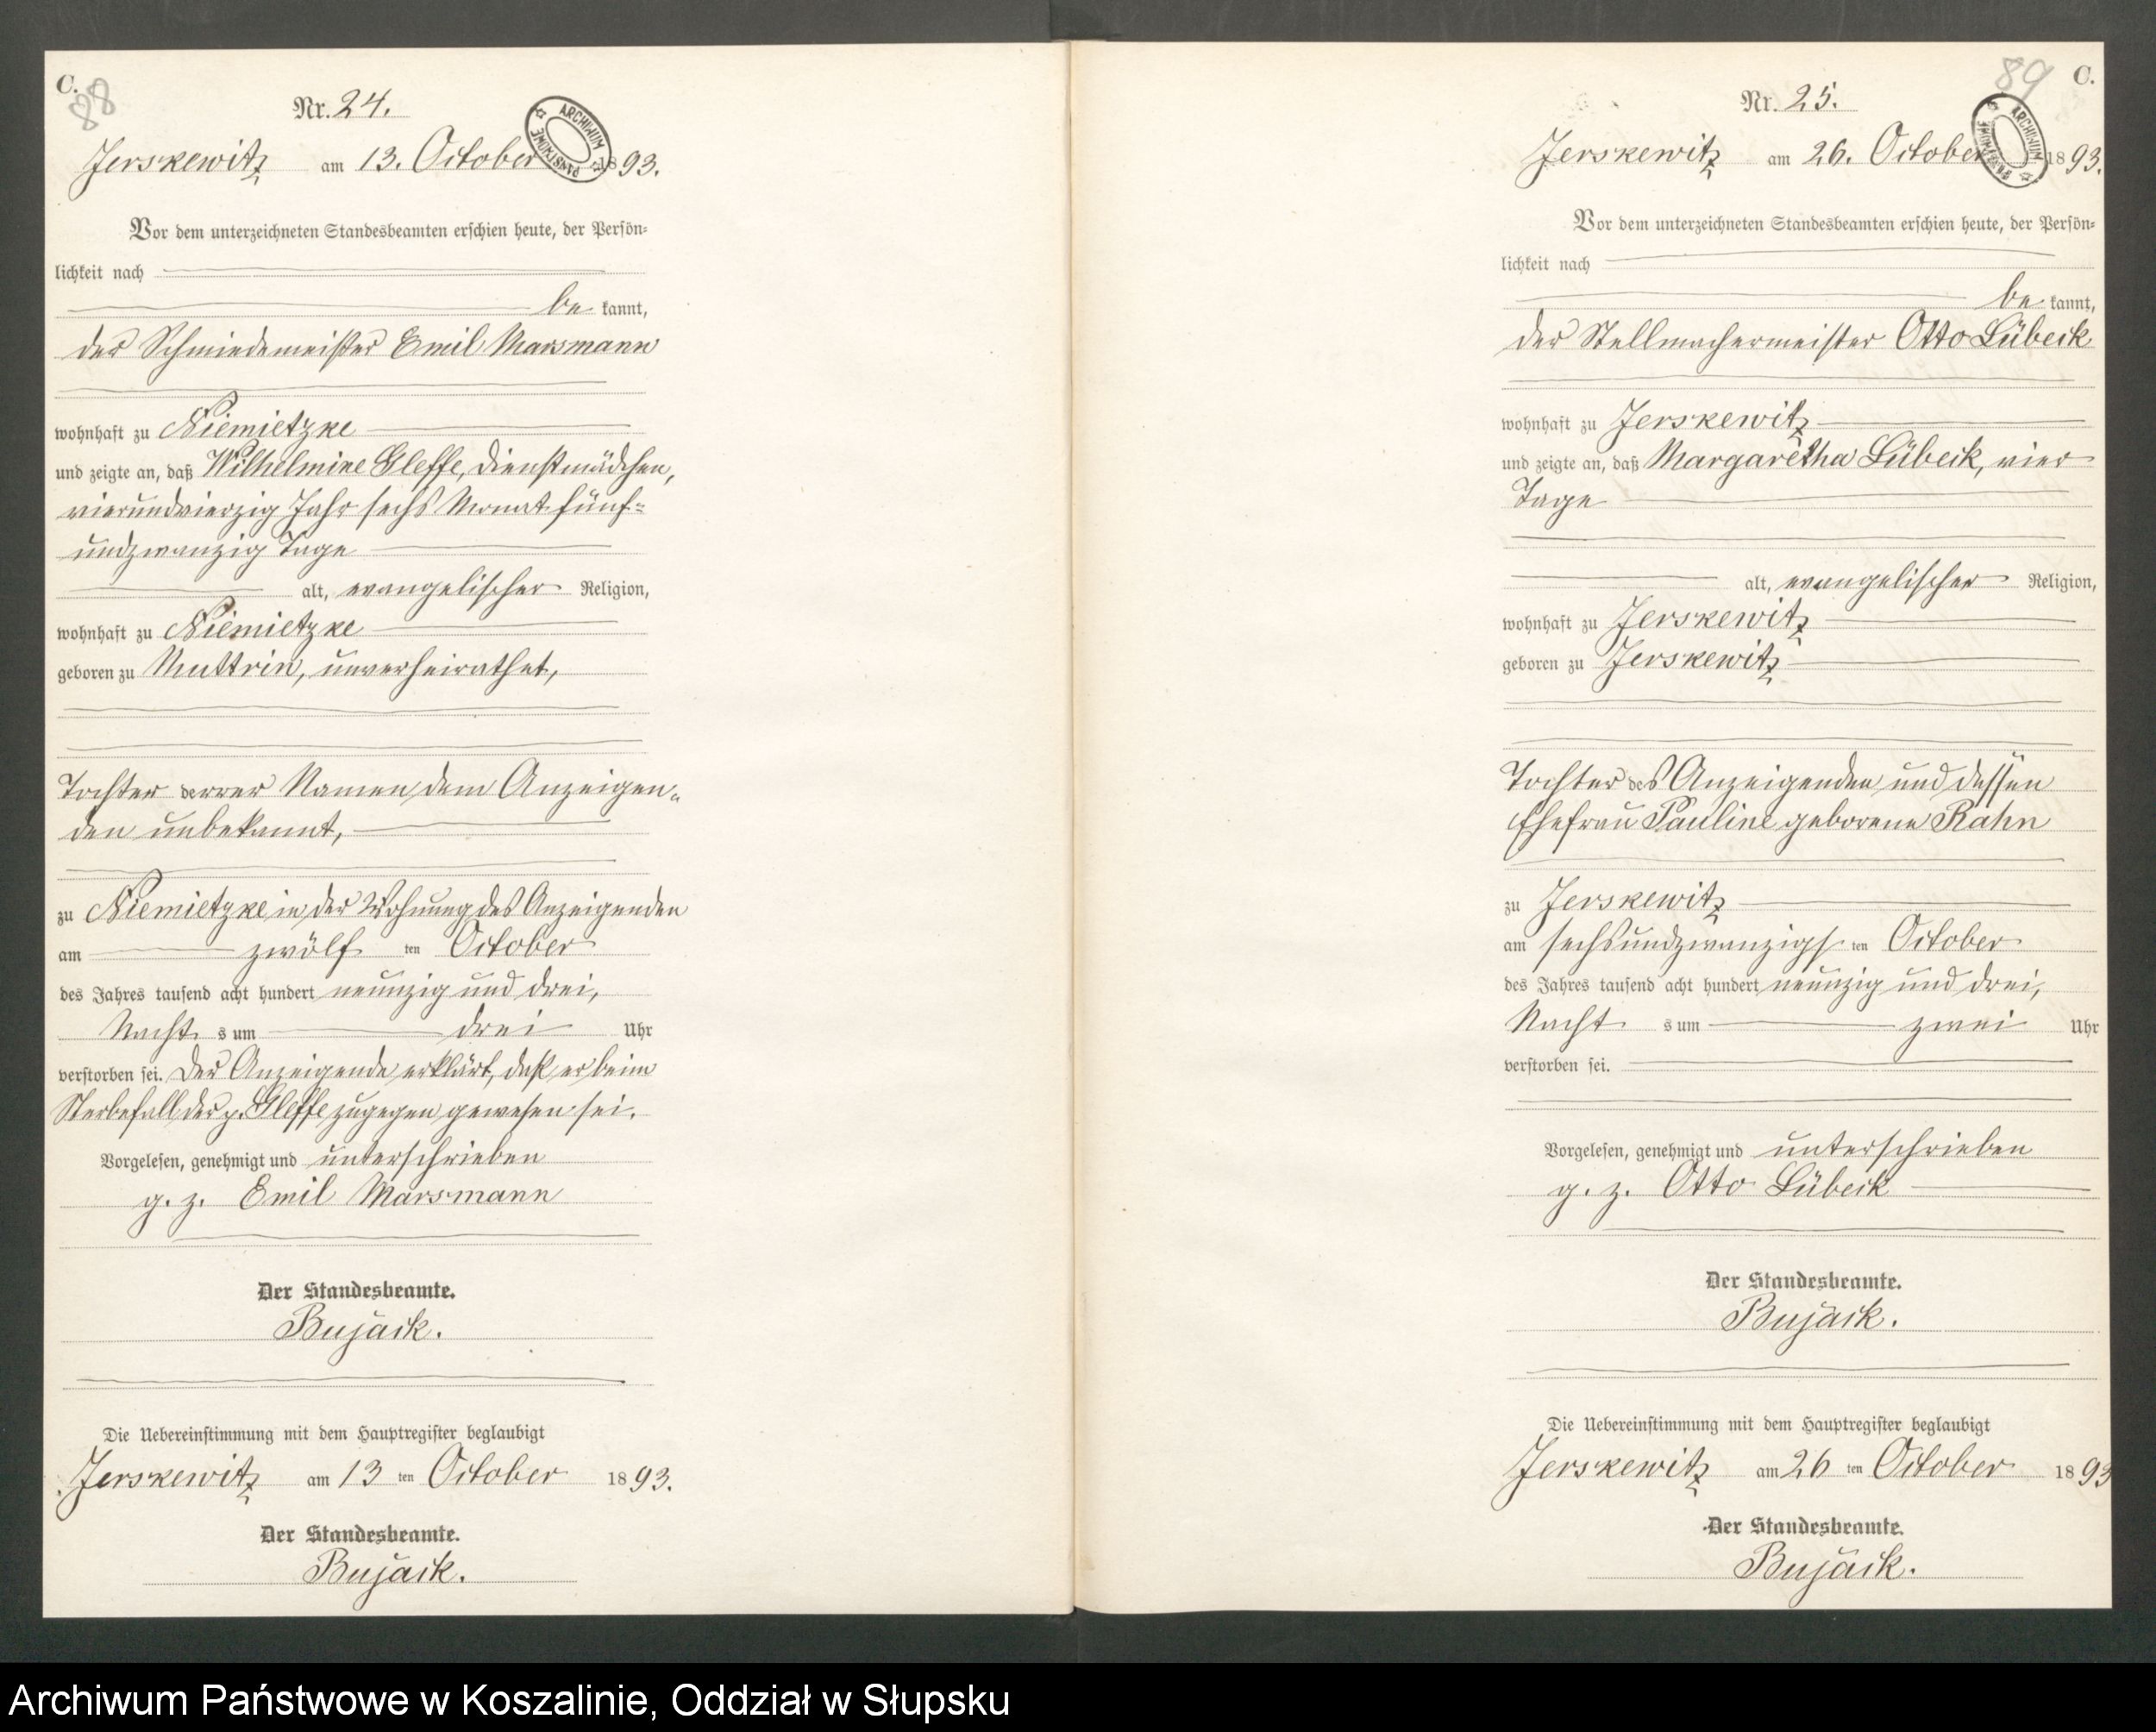 C.
88
Nr. 24.
ARCHIWUM PAŃSTWOWE
Jerskewitz am 13. October 1893.
Vor dem unterzeichneten Standesbeamten erschien heute, der Persön-
lichkeit nach
be kannt,
der Schmiedemeister Emil Marsmann
wohnhaft zu Niemietzke
und zeigte an, daß Wilhelmine Gleffe, Dienstmädchen,
vierundvierzig Jahr sechs Monat fünf-
undzwanzig Tage
alt, evangelischer Religion,
wohnhaft zu Niemietzke
geboren zu Muttrin, unverheirathet,
Tochter derer Namen dem Anzeigen-
den unbekannt,
zu Niemietzke in der Wohnung des Anzeigenden
am zwölf ten October
des Jahres tausend acht hundert neunzig und drei,
Nacht s um drei Uhr
verstorben sei. Der Anzeigende erklärt, daß er beim
Sterbefall der p. Gleffe zugegen gewesen sei.
Vorgelesen, genehmigt und unterschrieben
g. z. Emil Marsmann
Der Standesbeamte.
Bujack.
Die Uebereinstimmung mit dem Hauptregister beglaubigt
Jerskewitz am 13 ten October 1893.
Der Standesbeamte.
Bujack.
89
C.
Nr. 25.
ARCHIWUM PAŃSTWOWE
Jerskewitz am 26. October 1893.
Vor dem unterzeichneten Standesbeamten erschien heute, der Persön-
lichkeit nach
be kannt,
der Stellmachermeister Otto Lübeck
wohnhaft zu Jerskewitz
und zeigte an, daß Margaretha Lübeck, vier
Tage
alt, evangelischer Religion,
wohnhaft zu Jerskewitz
geboren zu Jerskewitz
Tochter des Anzeigenden und dessen
Ehefrau Pauline geborene Rahn
zu Jerskewitz
am sechsundzwanzigs ten October
des Jahres tausend acht hundert neunzig und drei,
Nacht s um zwei Uhr
verstorben sei.
Vorgelesen, genehmigt und unterschrieben
g. z. Otto Lübeck
Der Standesbeamte.
Bujack.
Die Uebereinstimmung mit dem Hauptregister beglaubigt
Jerskewitz am 26 ten October 1893
Der Standesbeamte.
Bujack.
Archiwum Państwowe w Koszalinie, Oddział w Słupsku